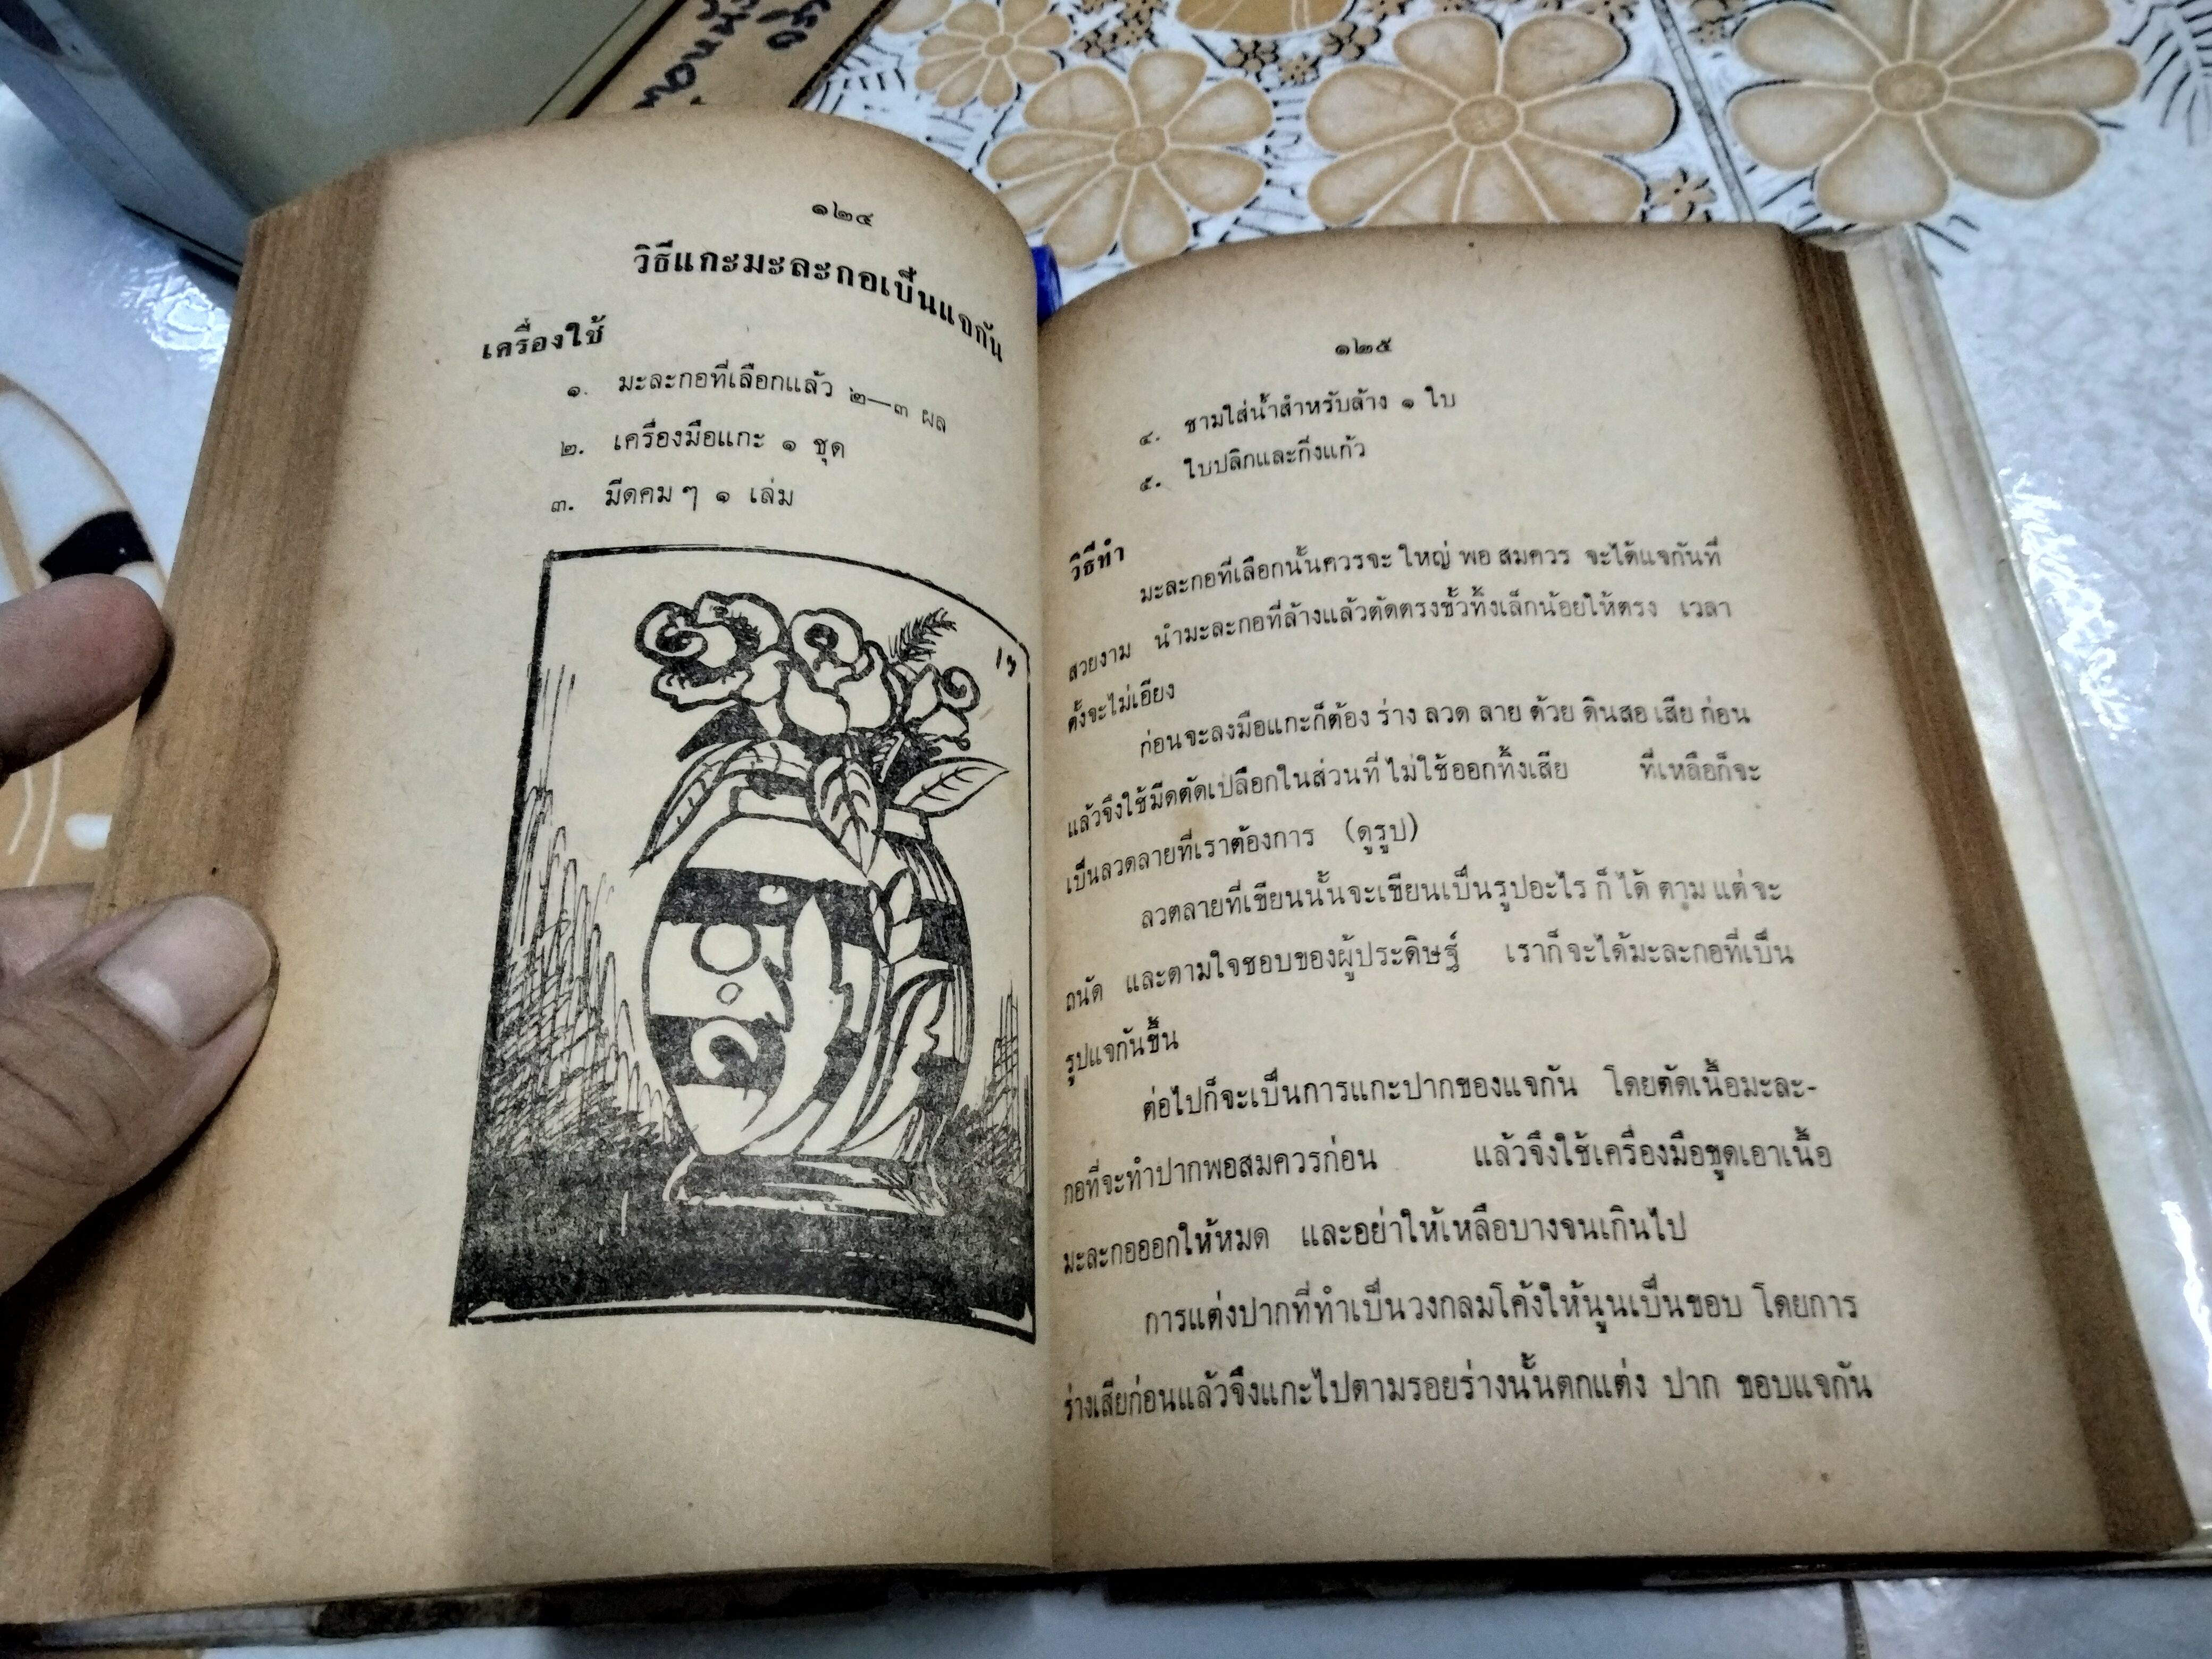 ๑๒๔
วิธีแกะมะละกอเป็นแจกัน
เครื่องใช้
๑. มะละกอที่เลือกแล้ว ๒—๓ ผล
๒. เครื่องมือแกะ ๑ ชุด
๓. มีดคม ๆ ๑ เล่ม
๑๒๕
๔. ชามใส่น้ำสำหรับล้าง ๑ ใบ
๕. ใบปลิกและกิ่งแก้ว
วิธีทำ
มะละกอที่เลือกนั้นควรจะ ใหญ่ พอ สมควร จะได้แจกันที่
สวยงาม นำมะละกอที่ล้างแล้วตัดตรงขั้วทิ้งเล็กน้อยให้ตรง เวลา
ตั้งจะไม่เอียง
ก่อนจะลงมือแกะก็ต้อง ร่าง ลวด ลาย ด้วย ดินสอ เสีย ก่อน
แล้วจึงใช้มีดตัดเปลือกในส่วนที่ ไม่ใช้ออกทิ้งเสีย ที่เหลือก็จะ
เป็นลวดลายที่เราต้องการ (ดูรูป)
ลวดลายที่เขียนนั้นจะเขียนเป็นรูปอะไร ก็ ได้ ตาม แต่ จะ
ถนัด และตามใจชอบของผู้ประดิษฐ์ เราก็จะได้มะละกอที่เป็น
รูปแจกันขึ้น
ต่อไปก็จะเป็นการแกะปากของแจกัน โดยตัดเนื้อมะละ-
กอที่จะทำปากพอสมควรก่อน แล้วจึงใช้เครื่องมือขูดเอาเนื้อ
มะละกอออกให้หมด และอย่าให้เหลือบางจนเกินไป
การแต่งปากที่ทำเป็นวงกลมโค้งให้นูนเป็นขอบ โดยการ
ร่างเสียก่อนแล้วจึงแกะไปตามรอยร่างนั้นตกแต่ง ปาก ขอบแจกัน